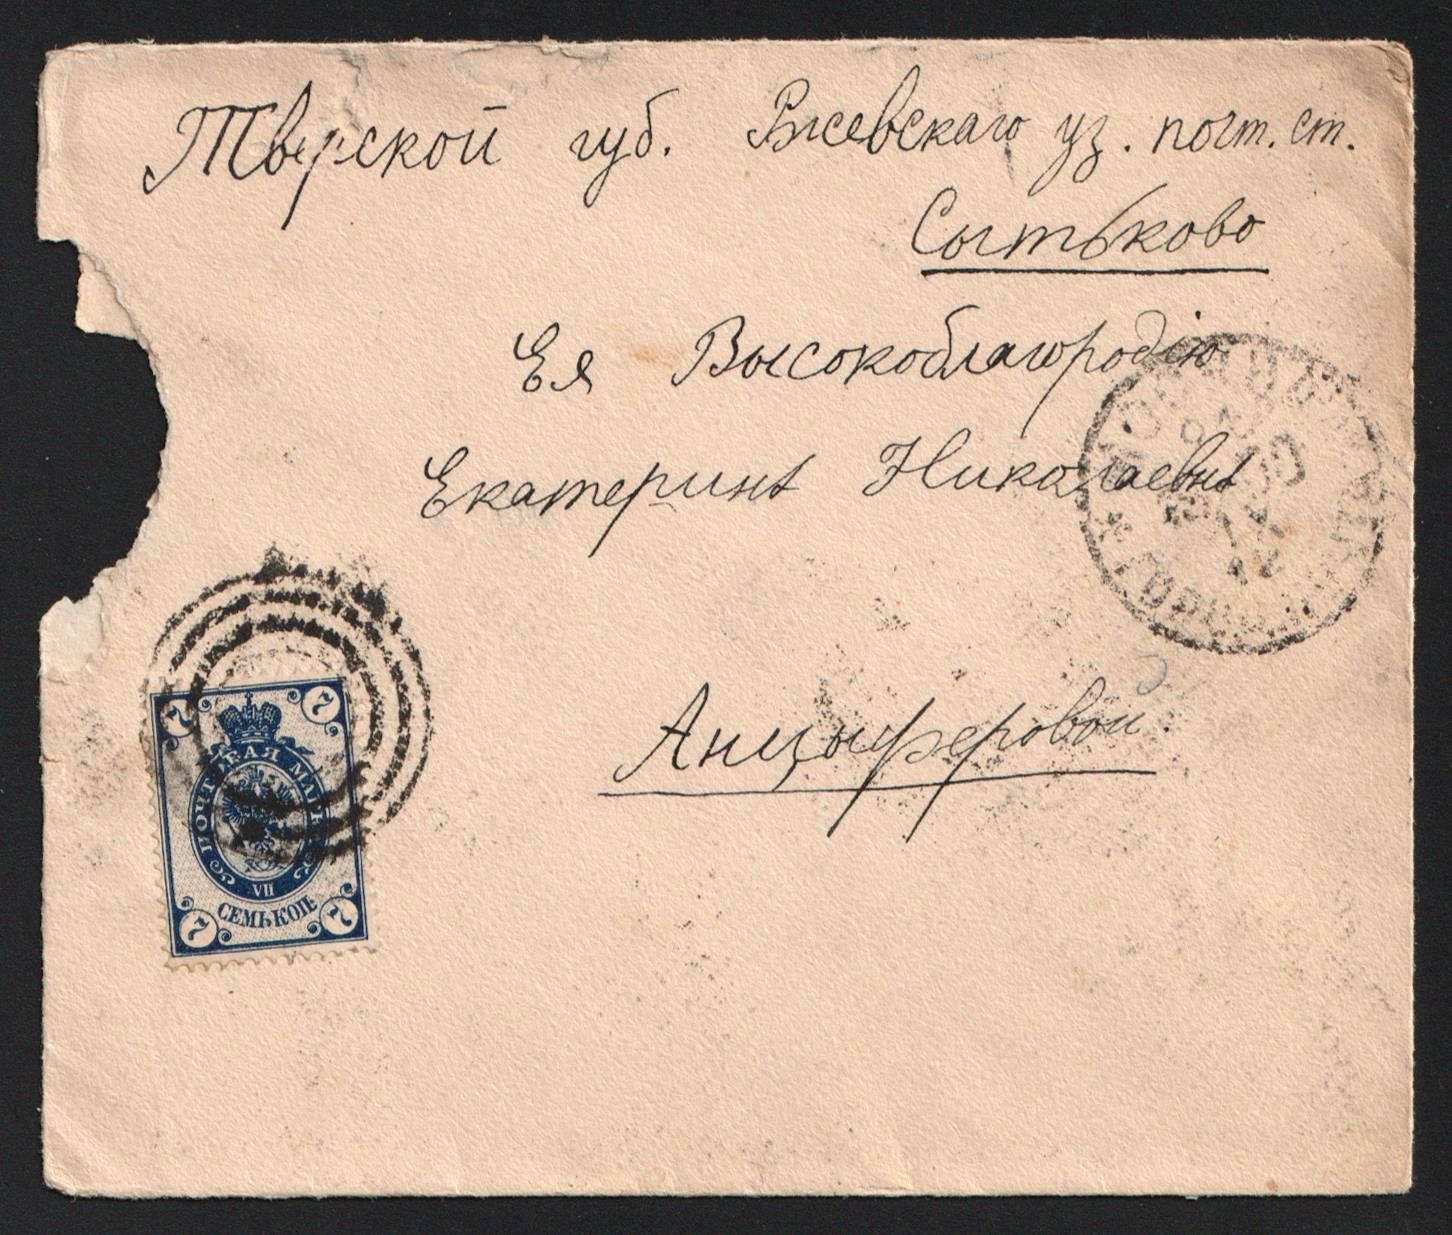 Тверской губ. Ржевскаго уз. почт. ст.
Сытьково
Ея Высокоблагородію
Екатеринѣ Николаевнѣ
Анцыферовой
7 7
ПОЧТОВАЯ МАРКА
VII
СЕМЬ КОП.
7 7
МОСКВА